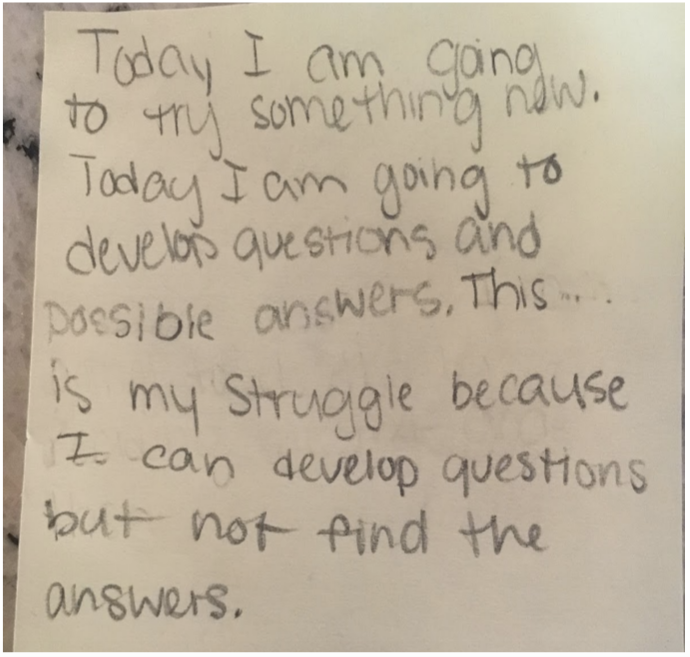 Today I am going
to try something new.
Today I am going to
develop questions and
possible answers. This...
is my struggle because
I can develop questions
but not find the
answers.